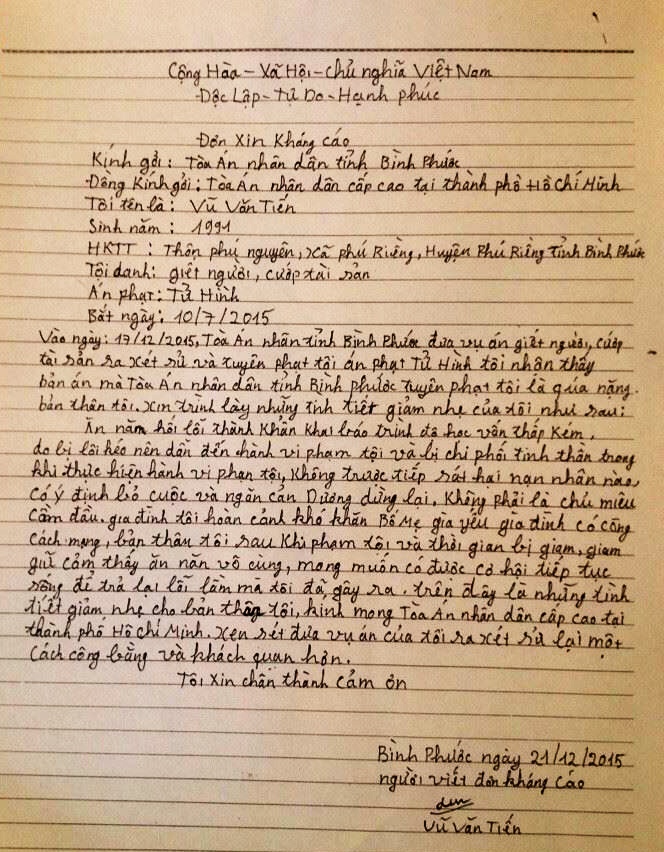 Cộng Hàa - Xã Hội - chủ nghĩa Việt Nam
Độc Lập - Tự Do - Hạnh phúc
Đơn Xin Kháng cáo
Kính gởi : Tòa Án nhân dân tỉnh Bình Phước
Đồng Kính gởi : Tòa Án nhân dân cấp cao tại thành phố Hồ Chí Minh
Tôi tên là : Vũ Văn Tiến
Sinh năm : 1991
HKTT : Thôn phú nguyên, xã phú Riềng, Huyện Phú Riềng tỉnh Bình Phước
Tội danh: giết người, cướp tài sản
Án phạt: Tử Hình
Bắt ngày: 10/7/2015
Vào ngày: 17/12/2015, Tòa Án nhân tỉnh Bình Phước đưa vụ án giết người, cướp
tài sản ra xét sử và tuyên phạt tôi án phạt Tử Hình tôi nhận thấy
bản án mà Tòa Án nhân dân tỉnh Bình Phước tuyên phạt tôi là qúa nặng.
bản thân tôi. xin trình lày những tình tiết giảm nhẹ của tôi như sau:
Ăn năn hối lỗi thành Khẩn Khai báo trình độ học vấn thấp Kém,
do bị lôi kéo nên dẫn đến hành vi phạm tội và bị chi phối tinh thần trong
khi thực hiện hành vi phạn tội, Không trược tiếp sát hại nạn nhân nào,
Có ý định bỏ cuộc và ngăn cản Dương dừng lại, Không phải là chủ miêu
Cầm đầu. gia đình tôi hoàn cảnh khó khăn Bố Mẹ gìa yếu gia đình có công
Cách mạng, bản thân tôi sau Khi phạm tội và thời gian bị giam, giam
giữ cảm thấy ăn năn vô cùng, mong muốn có được cơ hội tiếp tục
sống để trả lại lỗi lầm mà tôi đã gây ra. trên đây là những tình
tiết giảm nhẹ cho bản thân tôi, kính mong Tòa Án nhân dân cấp cao tại
thành phố Hồ Chí Minh. xen sét đưa vụ án của tôi ra xét sử lại một
Cách công bằng và khách quan hơn.
Tôi Xin chân thành cảm ơn
Bình Phước ngày 21/12/2015
người viết đơn kháng cáo
Vũ Văn Tiến